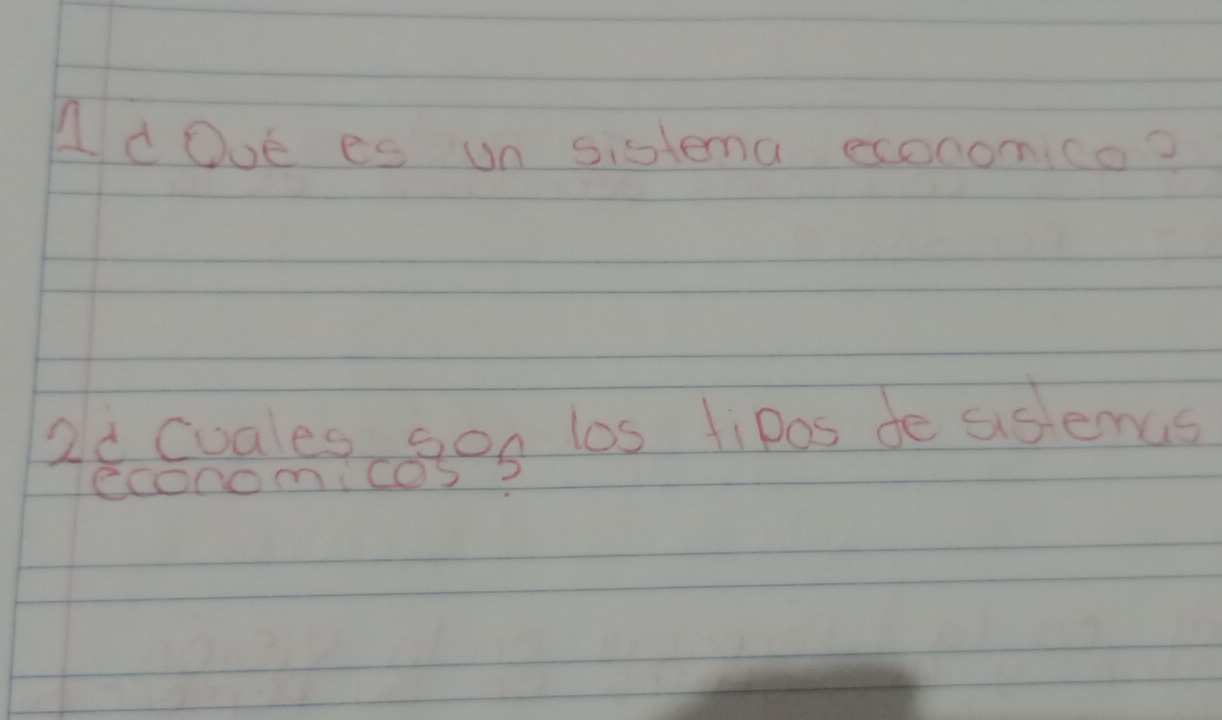 1 ¿Qué es un sistema economico?
2 ¿Cuales son los tipos de sistemas
economicos?